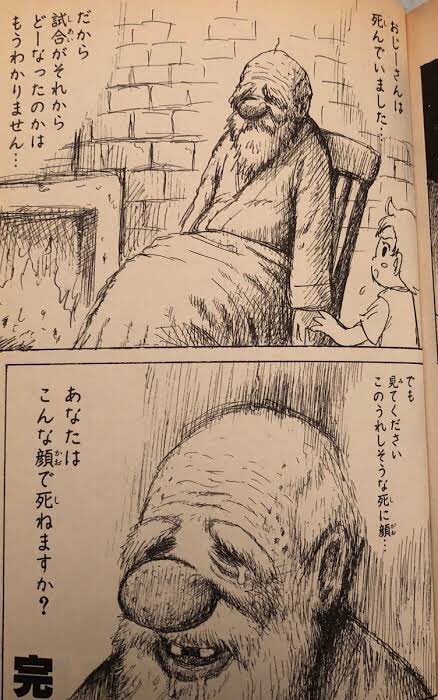 おじーさんは
死んでいました…
だから
試合がそれから
どーなったのかは
もうわかりません…
でも
見てください
このうれしそうな死に顔…
あなたは
こんな顔で死ねますか?
完